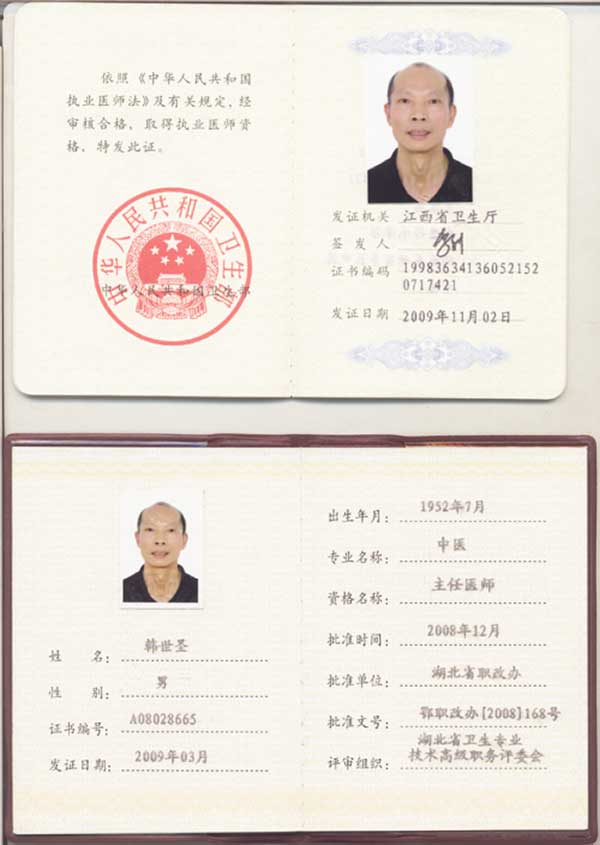 依照《中华人民共和国
执业医师法》及有关规定，经
审核合格，取得执业医师资
格，特发此证。
中华人民共和国卫生部
中华人民共和国卫生部
发证机关 江西省卫生厅
签发人
证书编码 19983634136052152
0717421
发证日期 2009年11月02日
姓 名：韩世圣
性 别：男
证书编号：A08028665
发证日期：2009年03月
出生年月：1952年7月
专业名称：中医
资格名称：主任医师
批准时间：2008年12月
批准单位：湖北省职改办
批准文号：鄂职改办[2008]168号
湖北省卫生专业
评审组织：技术高级职务评委会